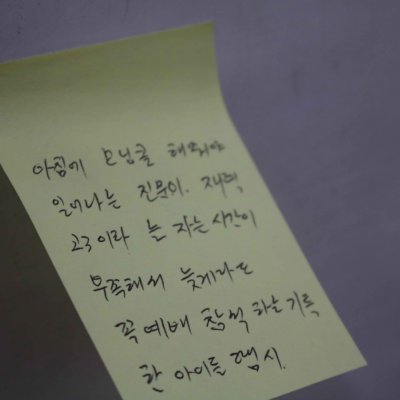 아침에 모닝콜 해줘야
일어나는 진문이. 재혁
고3이라 늘 자는시간이
부족해서 늦게라도
꼭 예배 참석 하는 기특
한 아이들 랩시.